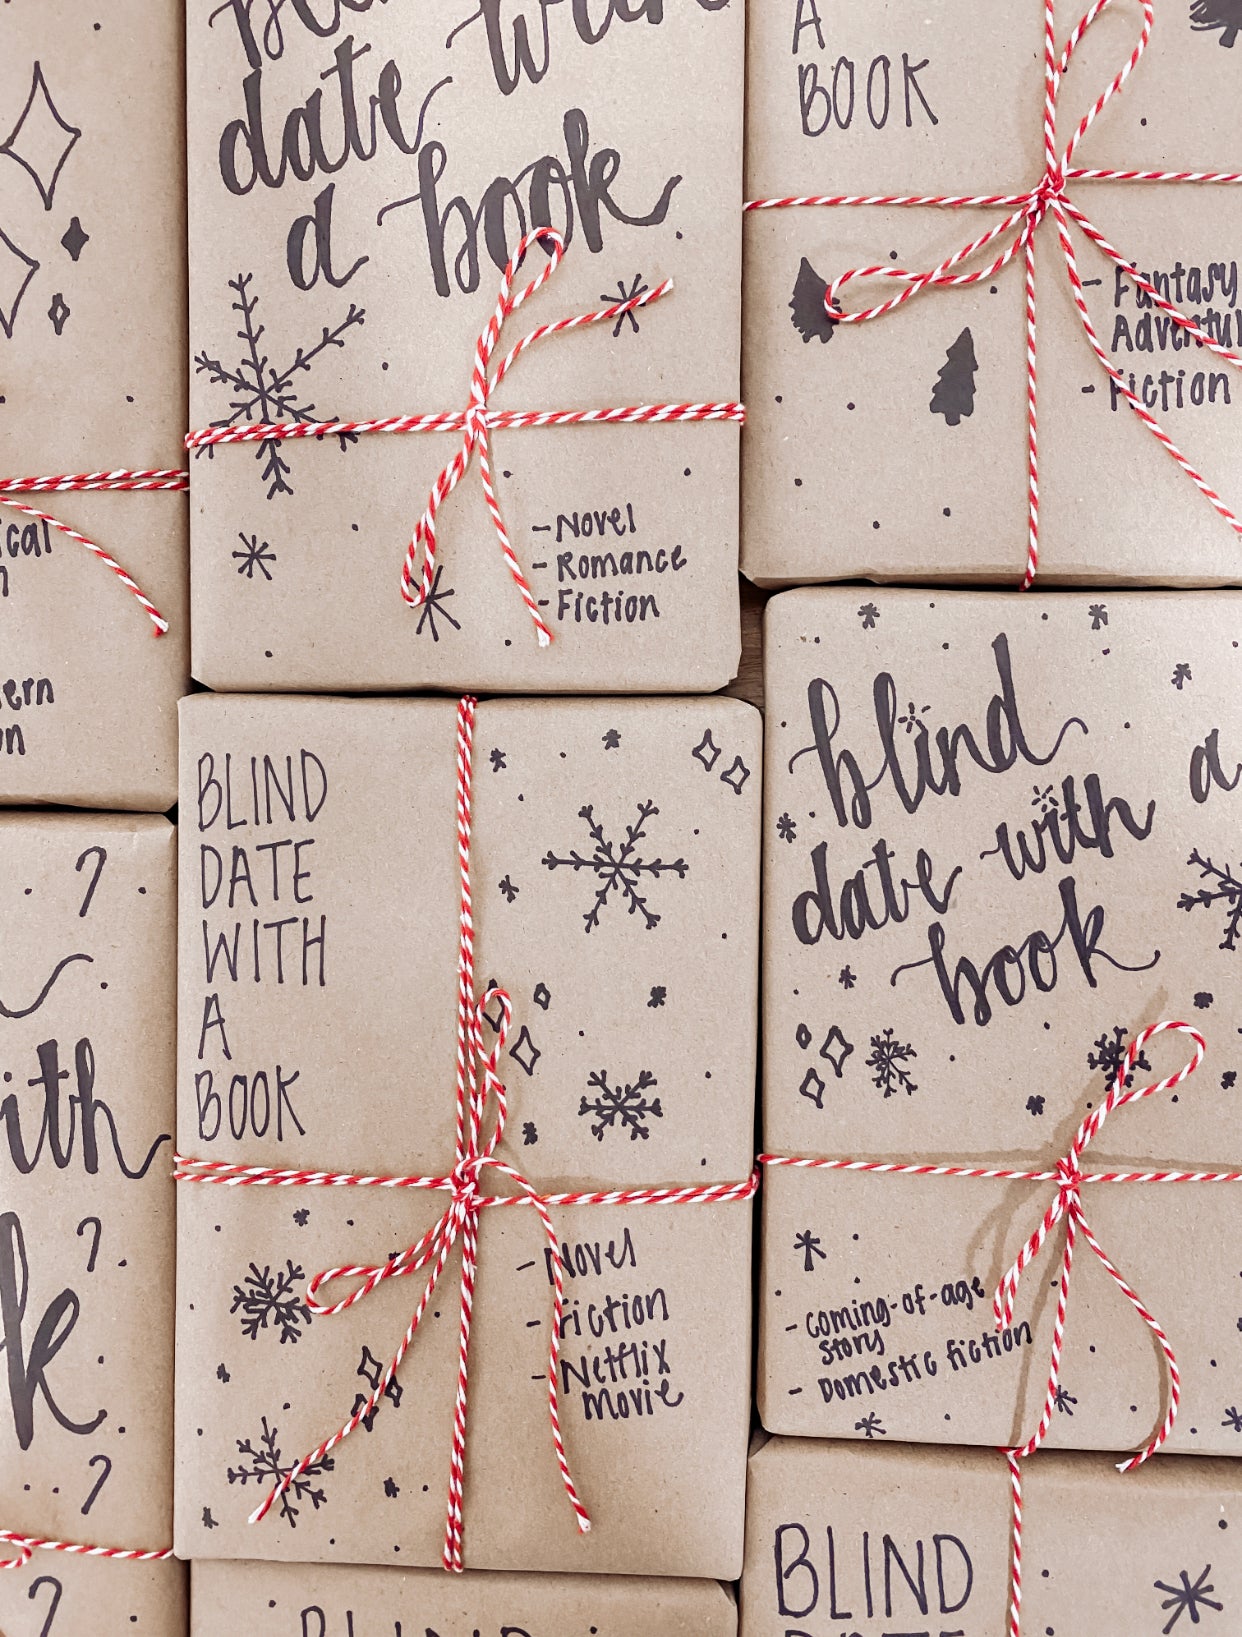 date with
a book
- Novel
- Romance
- Fiction
A
BOOK
- Fantasy
- Fiction
BLIND
DATE
WITH
A
BOOK
- Novel
- Fiction
- Netflix
movie
blind
date with a
book
- coming-of-age
story
- Domestic fiction
?
?
?
?
BLIND